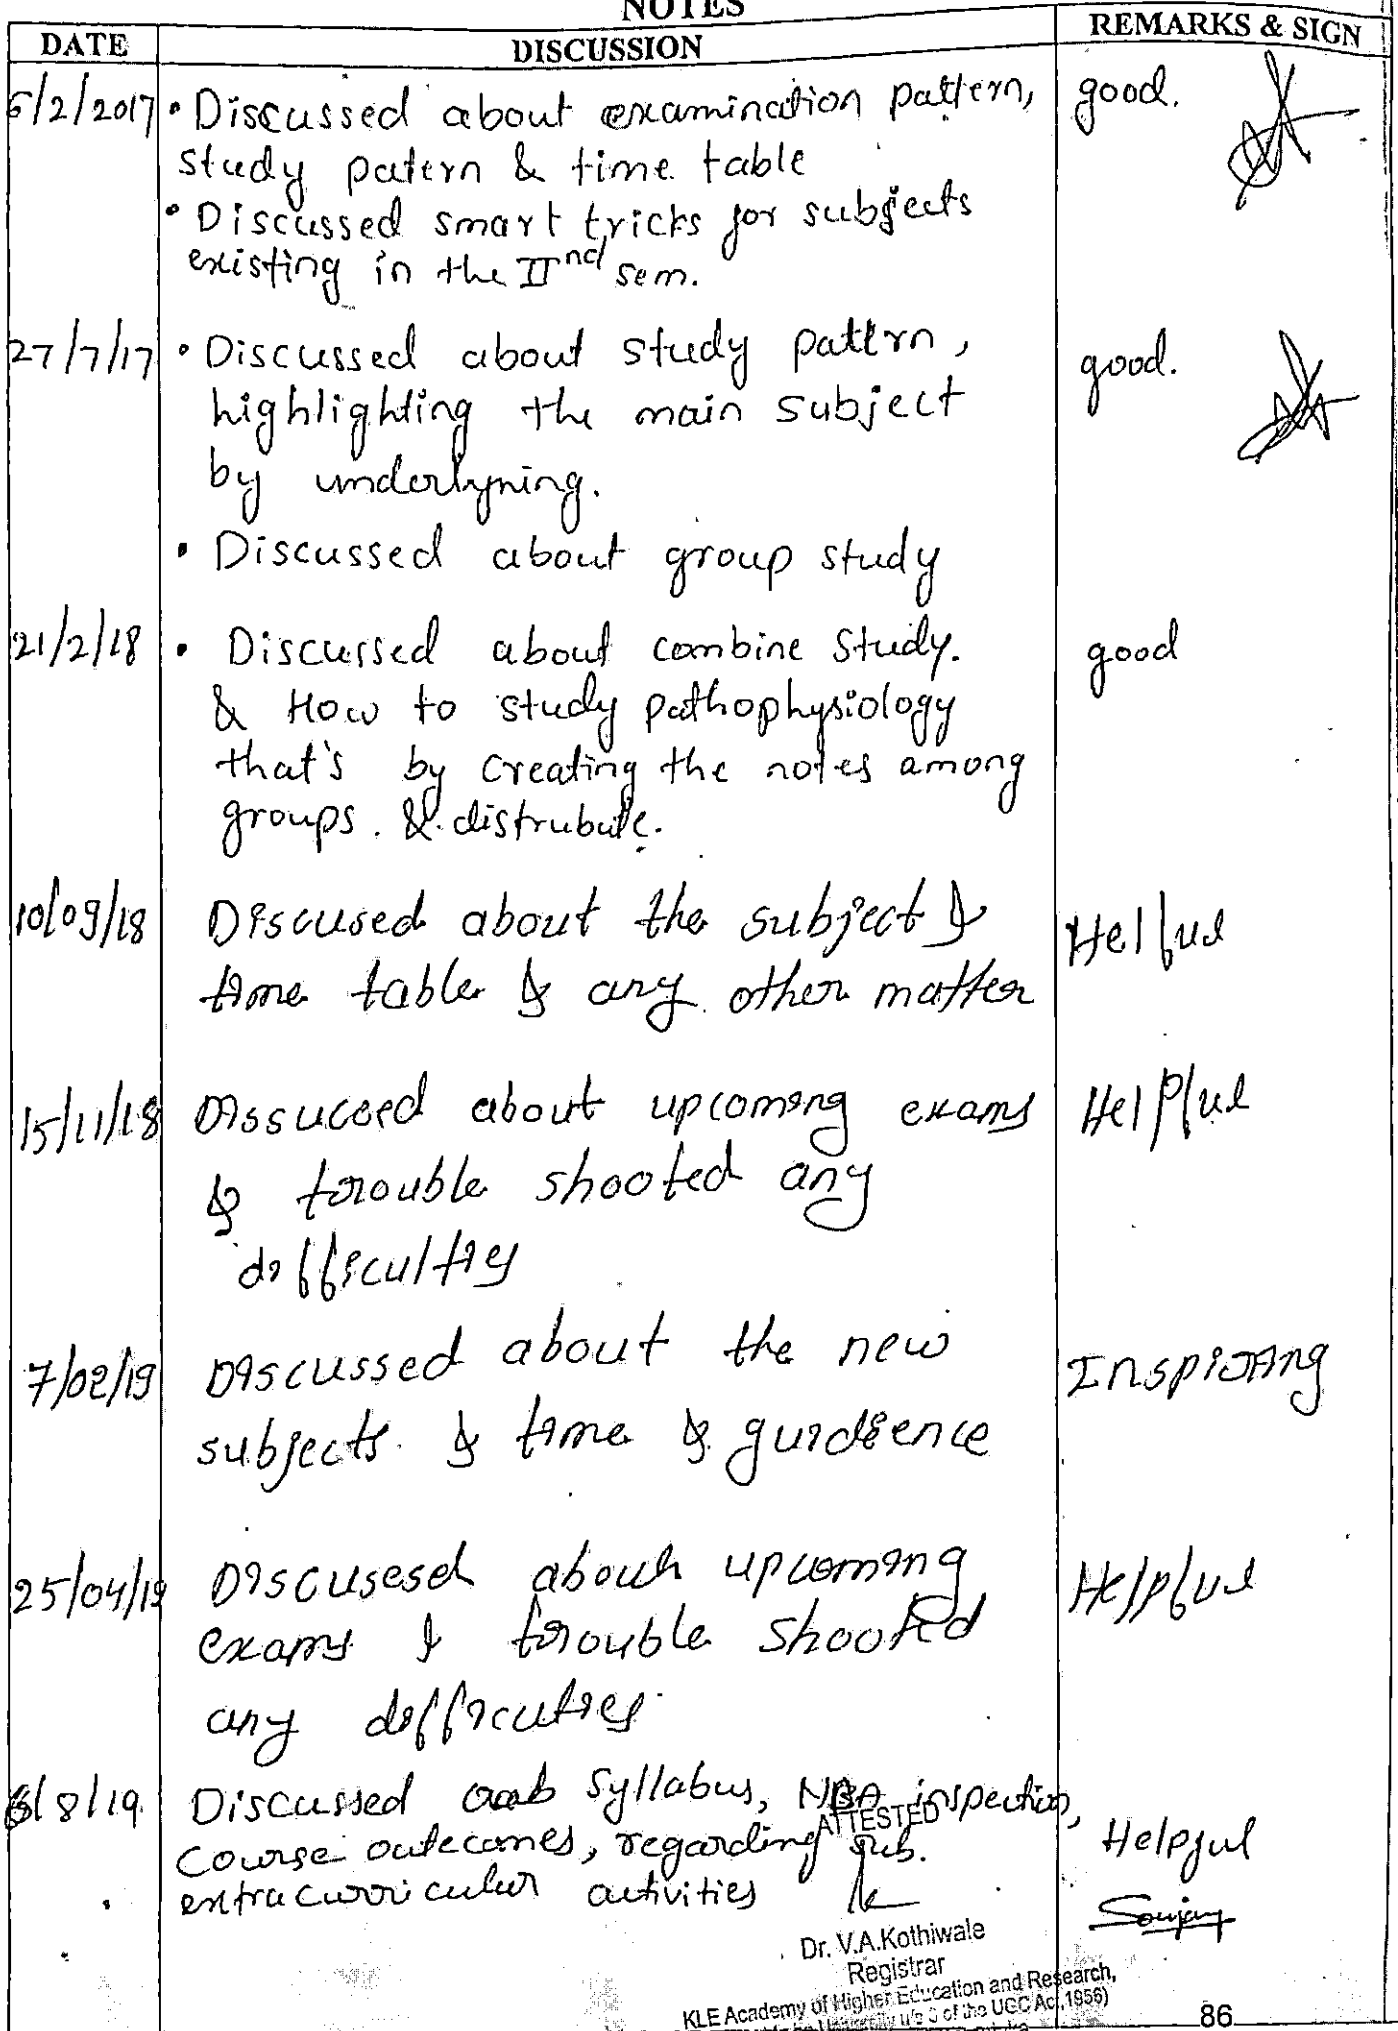 NOTES
DATE DISCUSSION REMARKS & SIGN
6/2/2017 • Discussed about examination pattern, good.
study patern & time table
• Discussed smart tricks for subjects
existing in the IInd sem.
27/7/17 • Discussed about study pattern, good.
highlighting the main subject
by underlyning.
• Discussed about group study
21/2/18 • Discussed about combine study. good
& How to study pathophysiology
that's by creating the notes among
groups. & distrubute.
10/09/18 Discused about the subject & Helful
time table & any other matter
15/11/18 Dissucced about upcoming exams Helpful
& trouble shooted any
difficulties
7/02/19 Discussed about the new Inspiring
subjects & time & guidience
25/04/19 Discusesd about upcoming Helpful
exams & trouble shooted
any difficuties
6/8/19 Discussed syllabus, NBA inspection,
ATTESTED
course outecomes, regarding sub. Helpful
extracurricular activities
Dr. V.A.Kothiwale
Registrar
KLE Academy of Higher Education and Research,
of the UGC Act,1956)
86